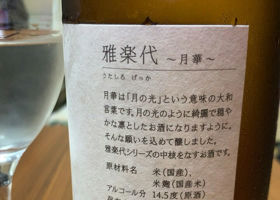 雅楽代 ～月華～
うたしろ げっか
月華は「月の光」という意味の大和
言葉です。月の光のように綺麗で穏や
かな凛としたお酒になりますように。
そんな願いを込めて醸しました。
雅楽代シリーズの中核をなすお酒です。
原材料名 米（国産）、
米麹（国産米）
アルコール分 14.5度（原酒）